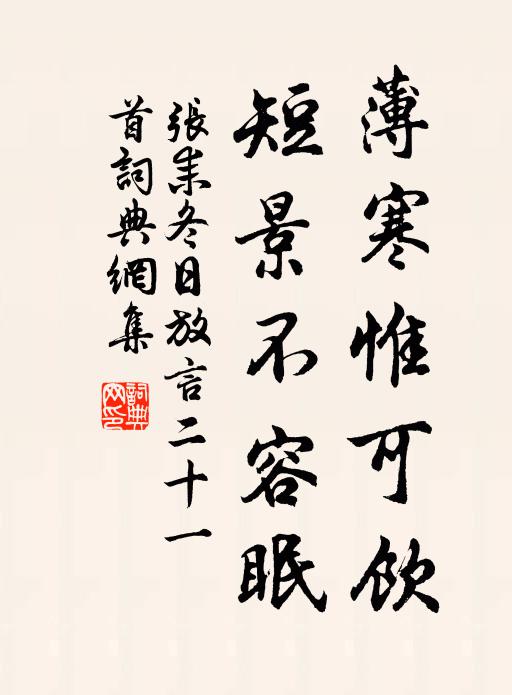 薄寒惟可飲
短景不容眠
張耒冬日放言二十一
首詞典網集
詞典網印